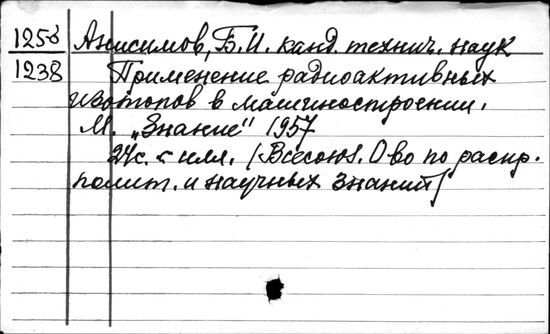 1256 Анисимов, Б. И. канд. технич. наук
1238 Применение радиоактивных
изотопов в машиностроении.
М. „Знание" 1957
24с. с илл. (Всесоюз. О во по распр.
полит. и научных знаний)